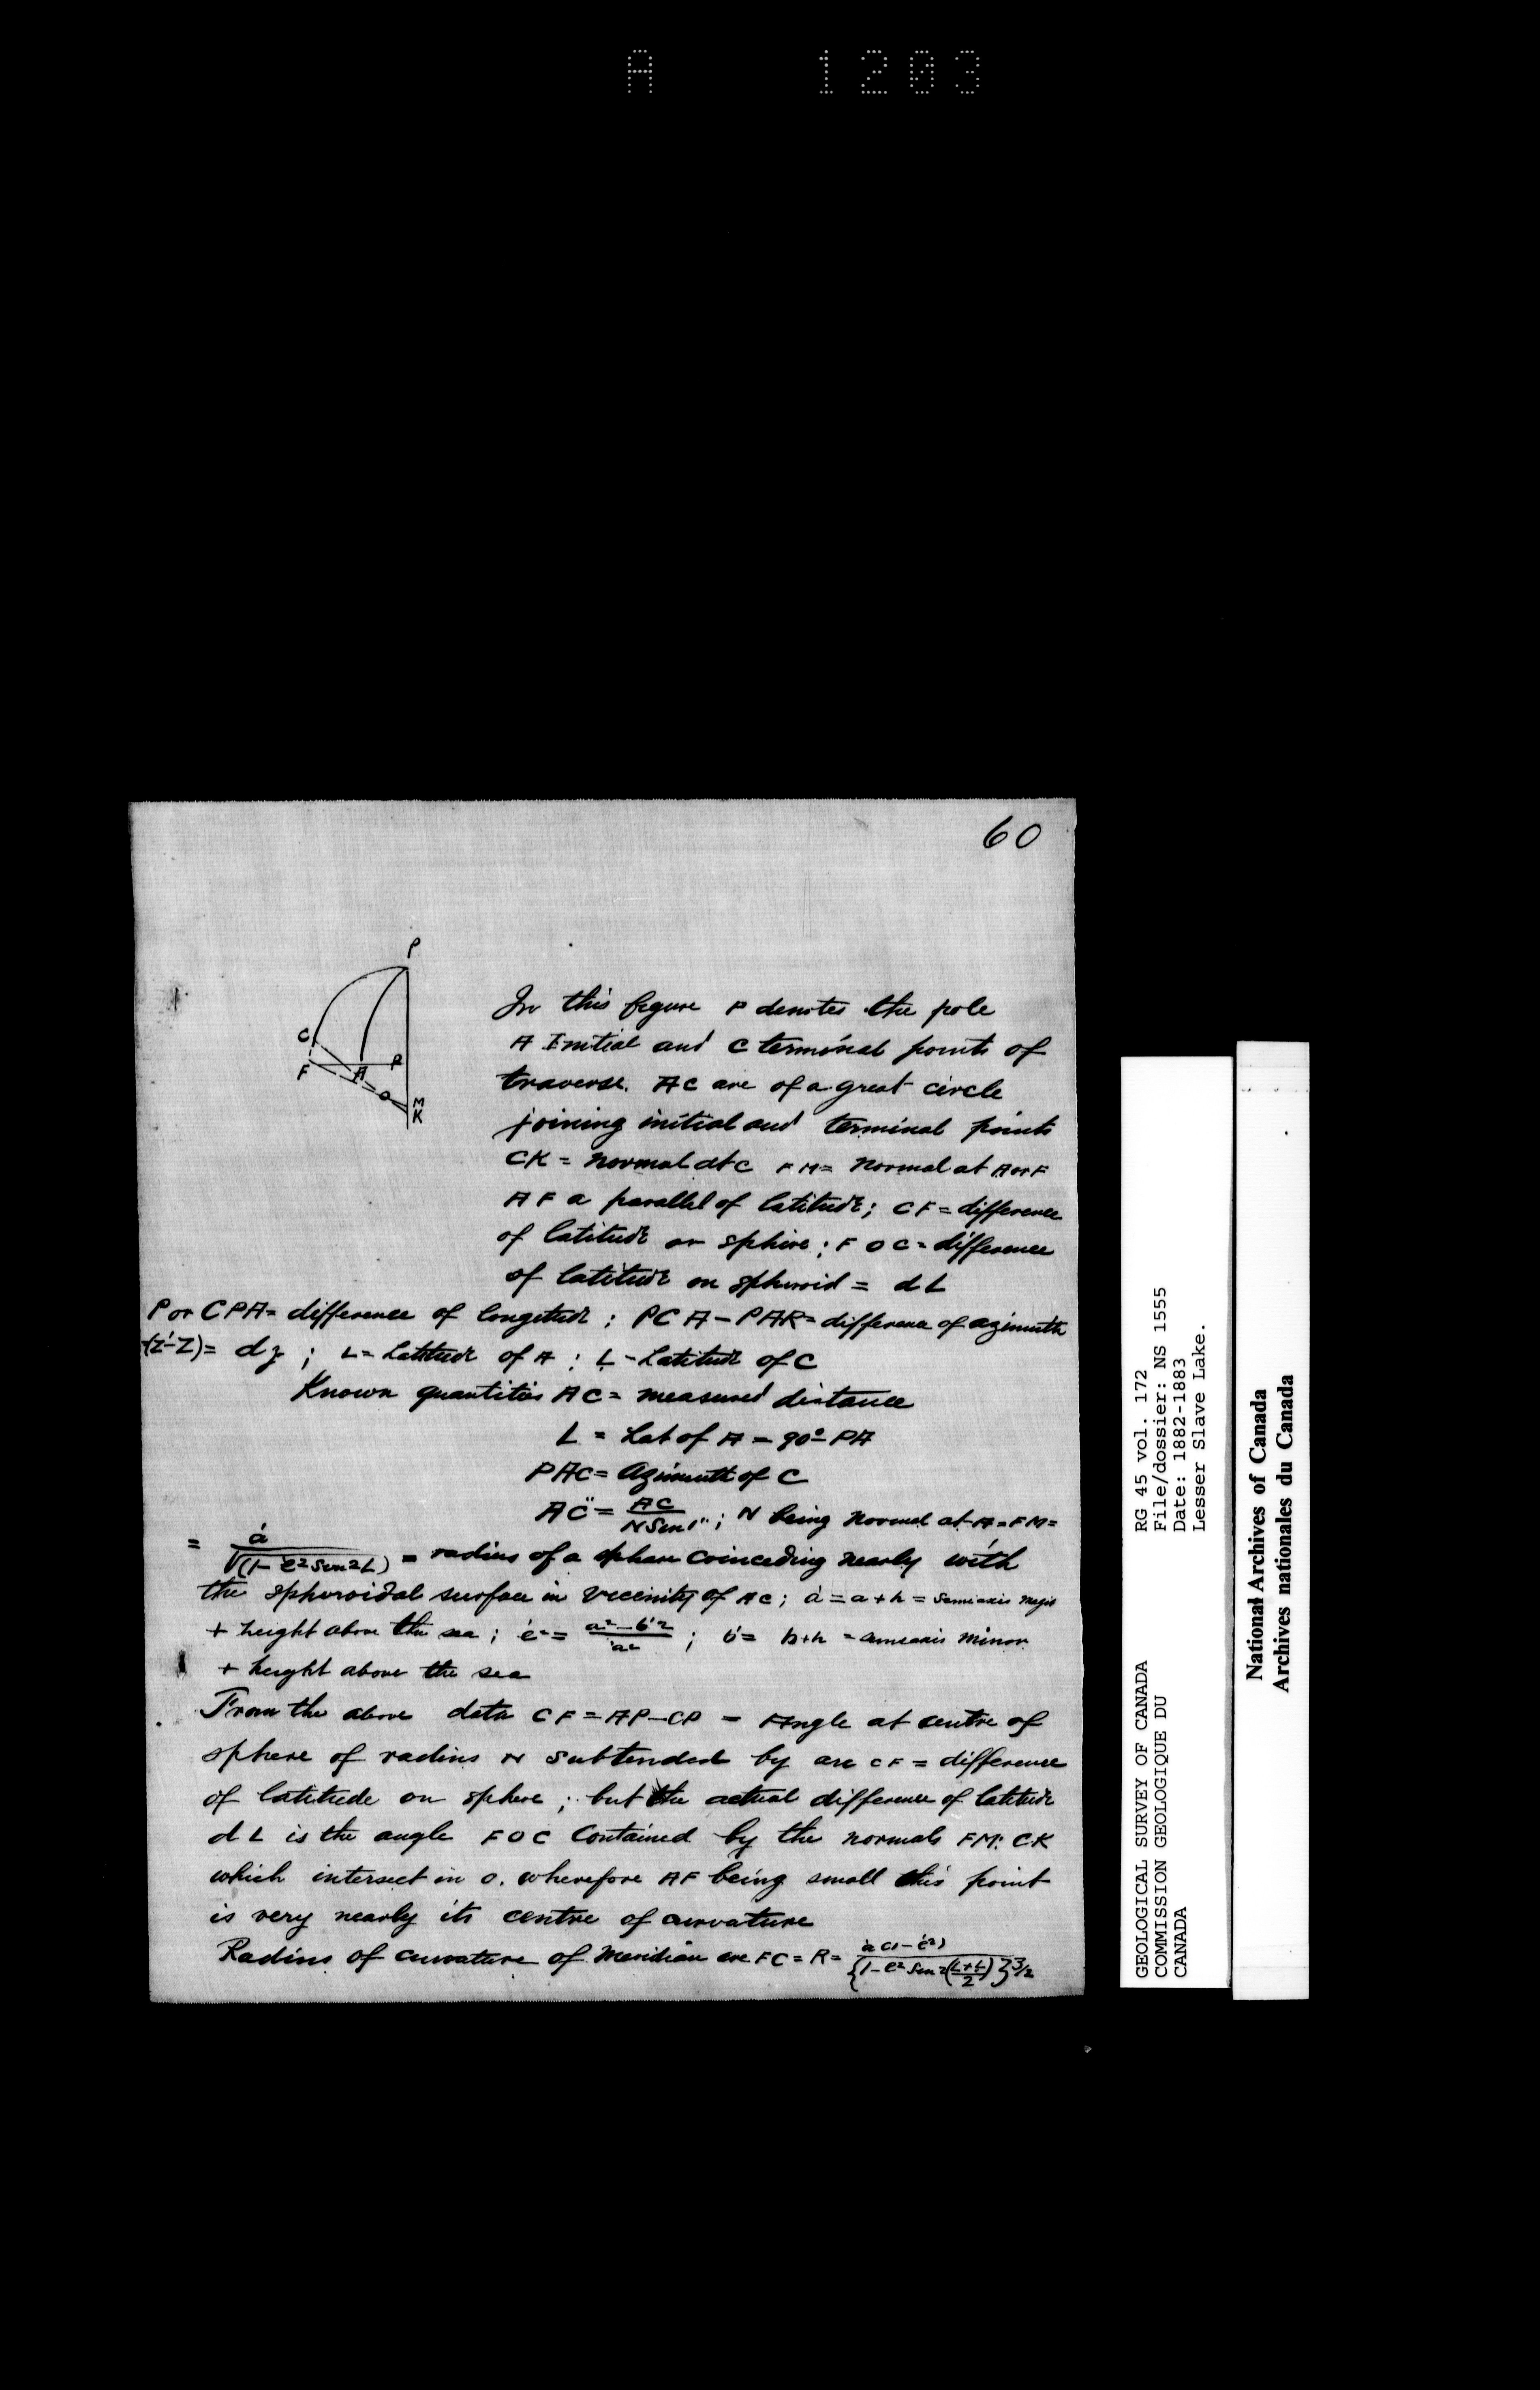 A 1203
60
P
C
F
A
R
O
M
K
In this figure P denotes the pole
A Initial and C terminal points of
traverse. AC arc of a great circle
joining initial and terminal points
CK = normal at C FM = normal at A or F
AF a parallel of latitude; CF = difference
of latitude on sphere; FOC = difference
of latitude on spheroid = dL
P or CPA = difference of longitude; PCA - PAR = difference of azimuth
(Z'-Z) = dz; L = Latitude of A; L' - Latitude of C
Known quantities AC = measured distance
L = Lat of A = 90° - PA
PAC = Azimuth of C
AC" = AC / N Sin 1"; N being Normal at A = FM =
= a' / √(1 - e'² Sin² L) = radius of a sphere coinceding nearly with
the spheroidal surface in vicenity of AC; a' = a + h = Semiaxis Major
+ height above the sea; e'² = a'² - b'² / a'²; b' = b + h = semiaxis minor
+ height above the sea
From the above data CF = AP - CP = Angle at centre of
sphere of radius N subtended by arc CF = difference
of latitude on sphere; but the actual difference of latitude
dL is the angle FOC Contained by the normals FM: CK
which intersect in O. wherefore AF being small this point
is very nearly its centre of curvature
Radius of curvature of Meridian arc FC = R = a'(1 - e'²) / {1 - e'² Sin² (L + L' / 2)}^3/2
GEOLOGICAL SURVEY OF CANADA RG 45 vol. 172
COMMISSION GEOLOGIQUE DU File/dossier: NS 1555
CANADA Date: 1882-1883
Lesser Slave Lake.
National Archives of Canada
Archives nationales du Canada